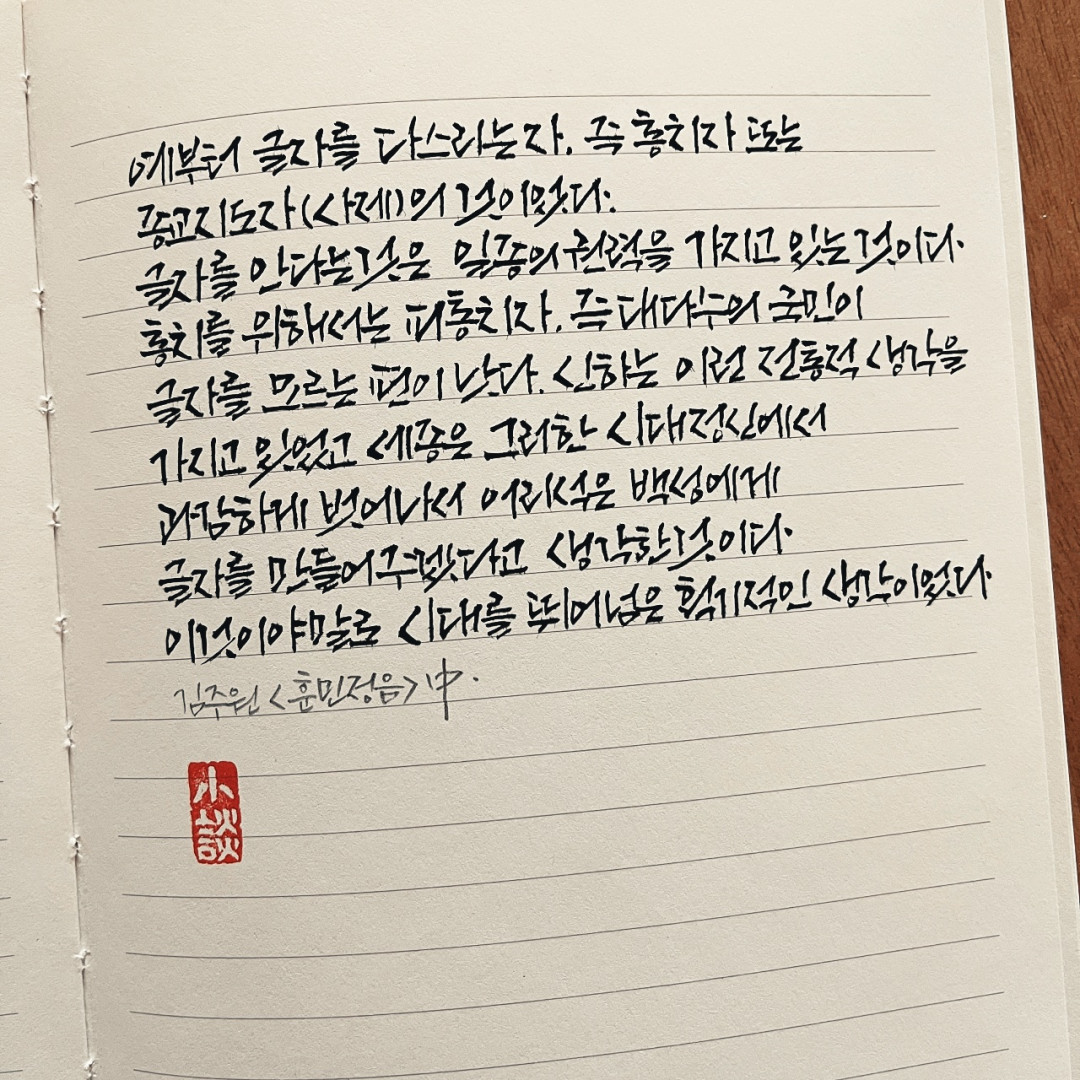 예부터 글자를 다스리는자, 즉 통치자 또는
종교지도자(사제)의 것이었다.
글자를 안다는것은 일종의 권력을 가지고 있는것이다.
통치를 위해서는 피통치자, 즉 대다수의 국민이
글자를 모르는 편이 낫다. 신하는 이런 전통적 생각을
가지고 있었고 세종은 그러한 시대정신에서
과감하게 벗어나서 어리석은 백성에게
글자를 만들어주겠다고 생각한것이다.
이것이야말로 시대를 뛰어넘은 획기적인 생각이었다.
김주원 <훈민정음> 中.
小
談